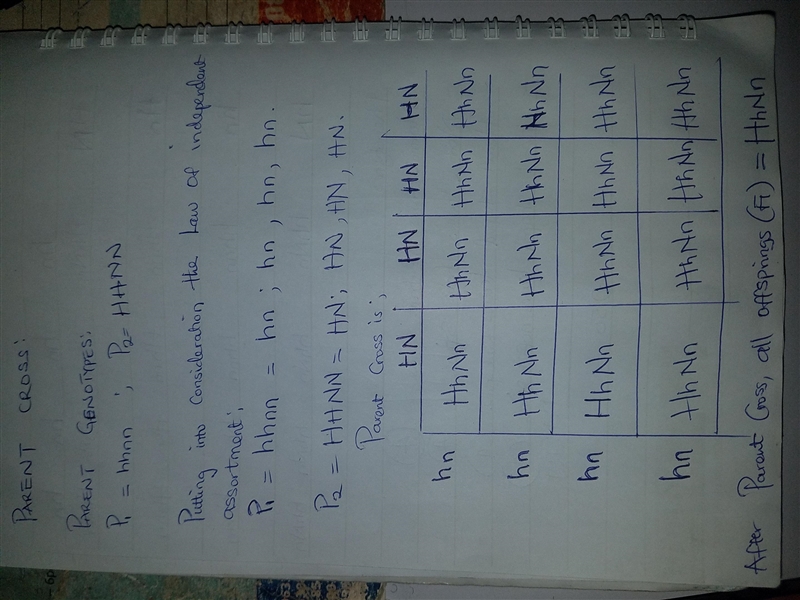 PARENT CROSS:
PARENT GENOTYPES:
P1 = hhnn ; P2 = HHNN
Putting into Consideration the Law of independent
assortment;
P1 = hhnn = hn ; hn ; hn , hn.
P2 = HHNN = HN ; HN , HN , HN.
Parent Cross is ;
HN HN HN HN
hn HhNn HhNn HhNn HhNn
hn HhNn HhNn HhNn HhNn
hn HhNn HhNn HhNn HhNn
hn HhNn HhNn HhNn HhNn
After Parent Cross, all offsprings (F1) = HhNn